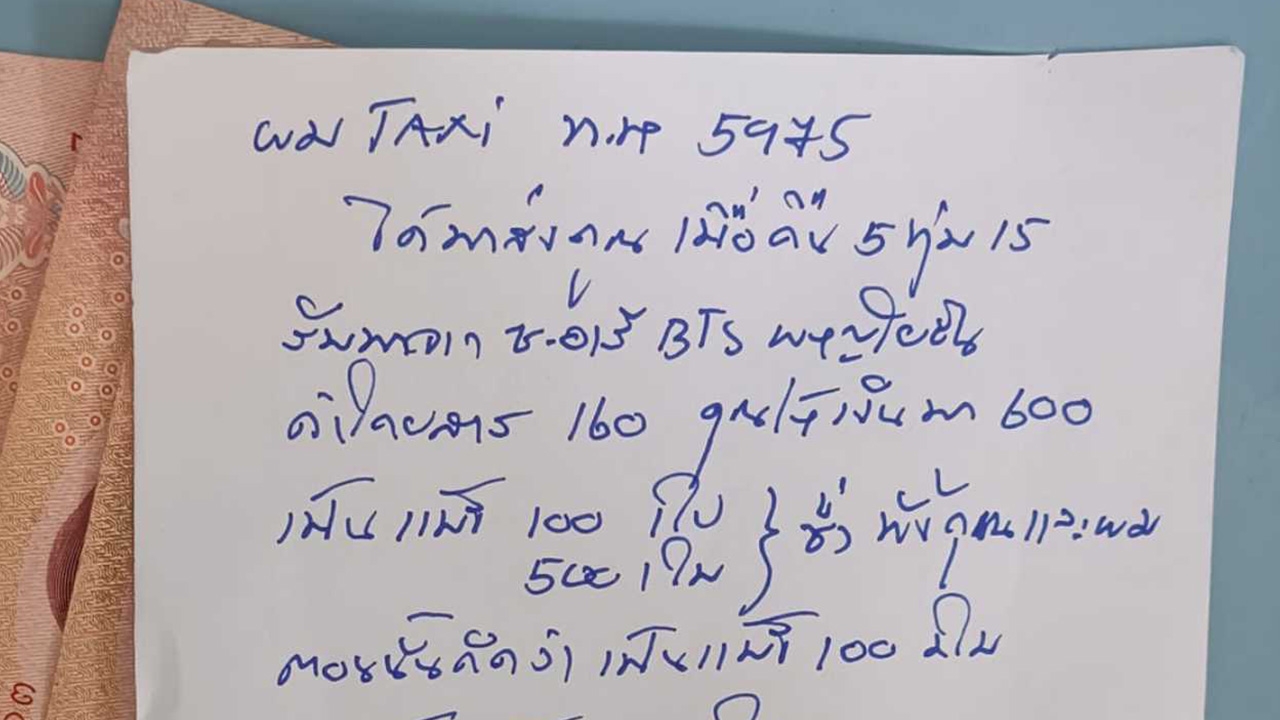 ผม TAXi ท.ห 5975
ได้มาส่งคุณ เมื่อคืน 5 ทุ่ม 15
รับมาจาก ซ.อารี BTS พหลโยธิน
ค่าโดยสาร 160 คุณให้เงินมา 600
เป็นแบงค์ 100 1ใบ } ซึ่งทั้งคุณและผม
500 1ใบ
ตอนนั้นคิดว่า เป็นแบงค์ 100 2ใบ